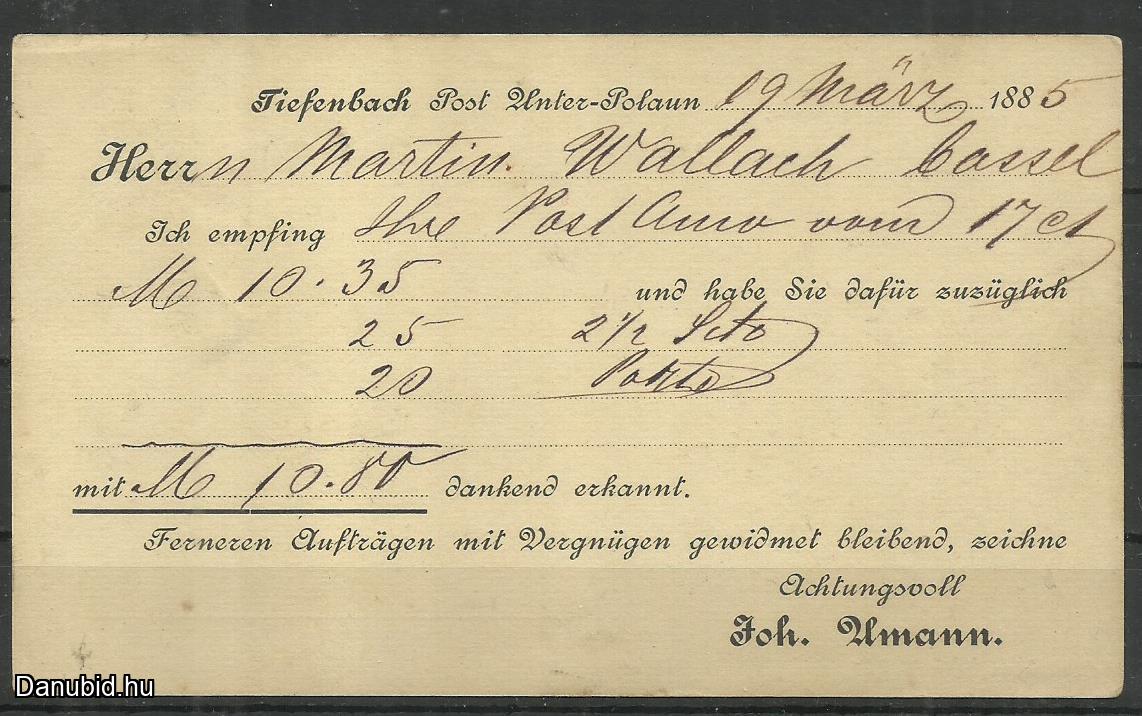 Tiefenbach Post Unter-Polaun 19 März 1885
Herrn Martin Wallach Cassel
Ich empfing Ihre Post Anw vom 17 ct
M 10.35 und habe Sie dafür zuzüglich
25 2 1/2 Scto
20 Porto
mit M 10.80 dankend erkannt.
Ferneren Aufträgen mit Vergnügen gewidmet bleibend, zeichne
Achtungsvoll
Joh. Umann.
Danubid.hu